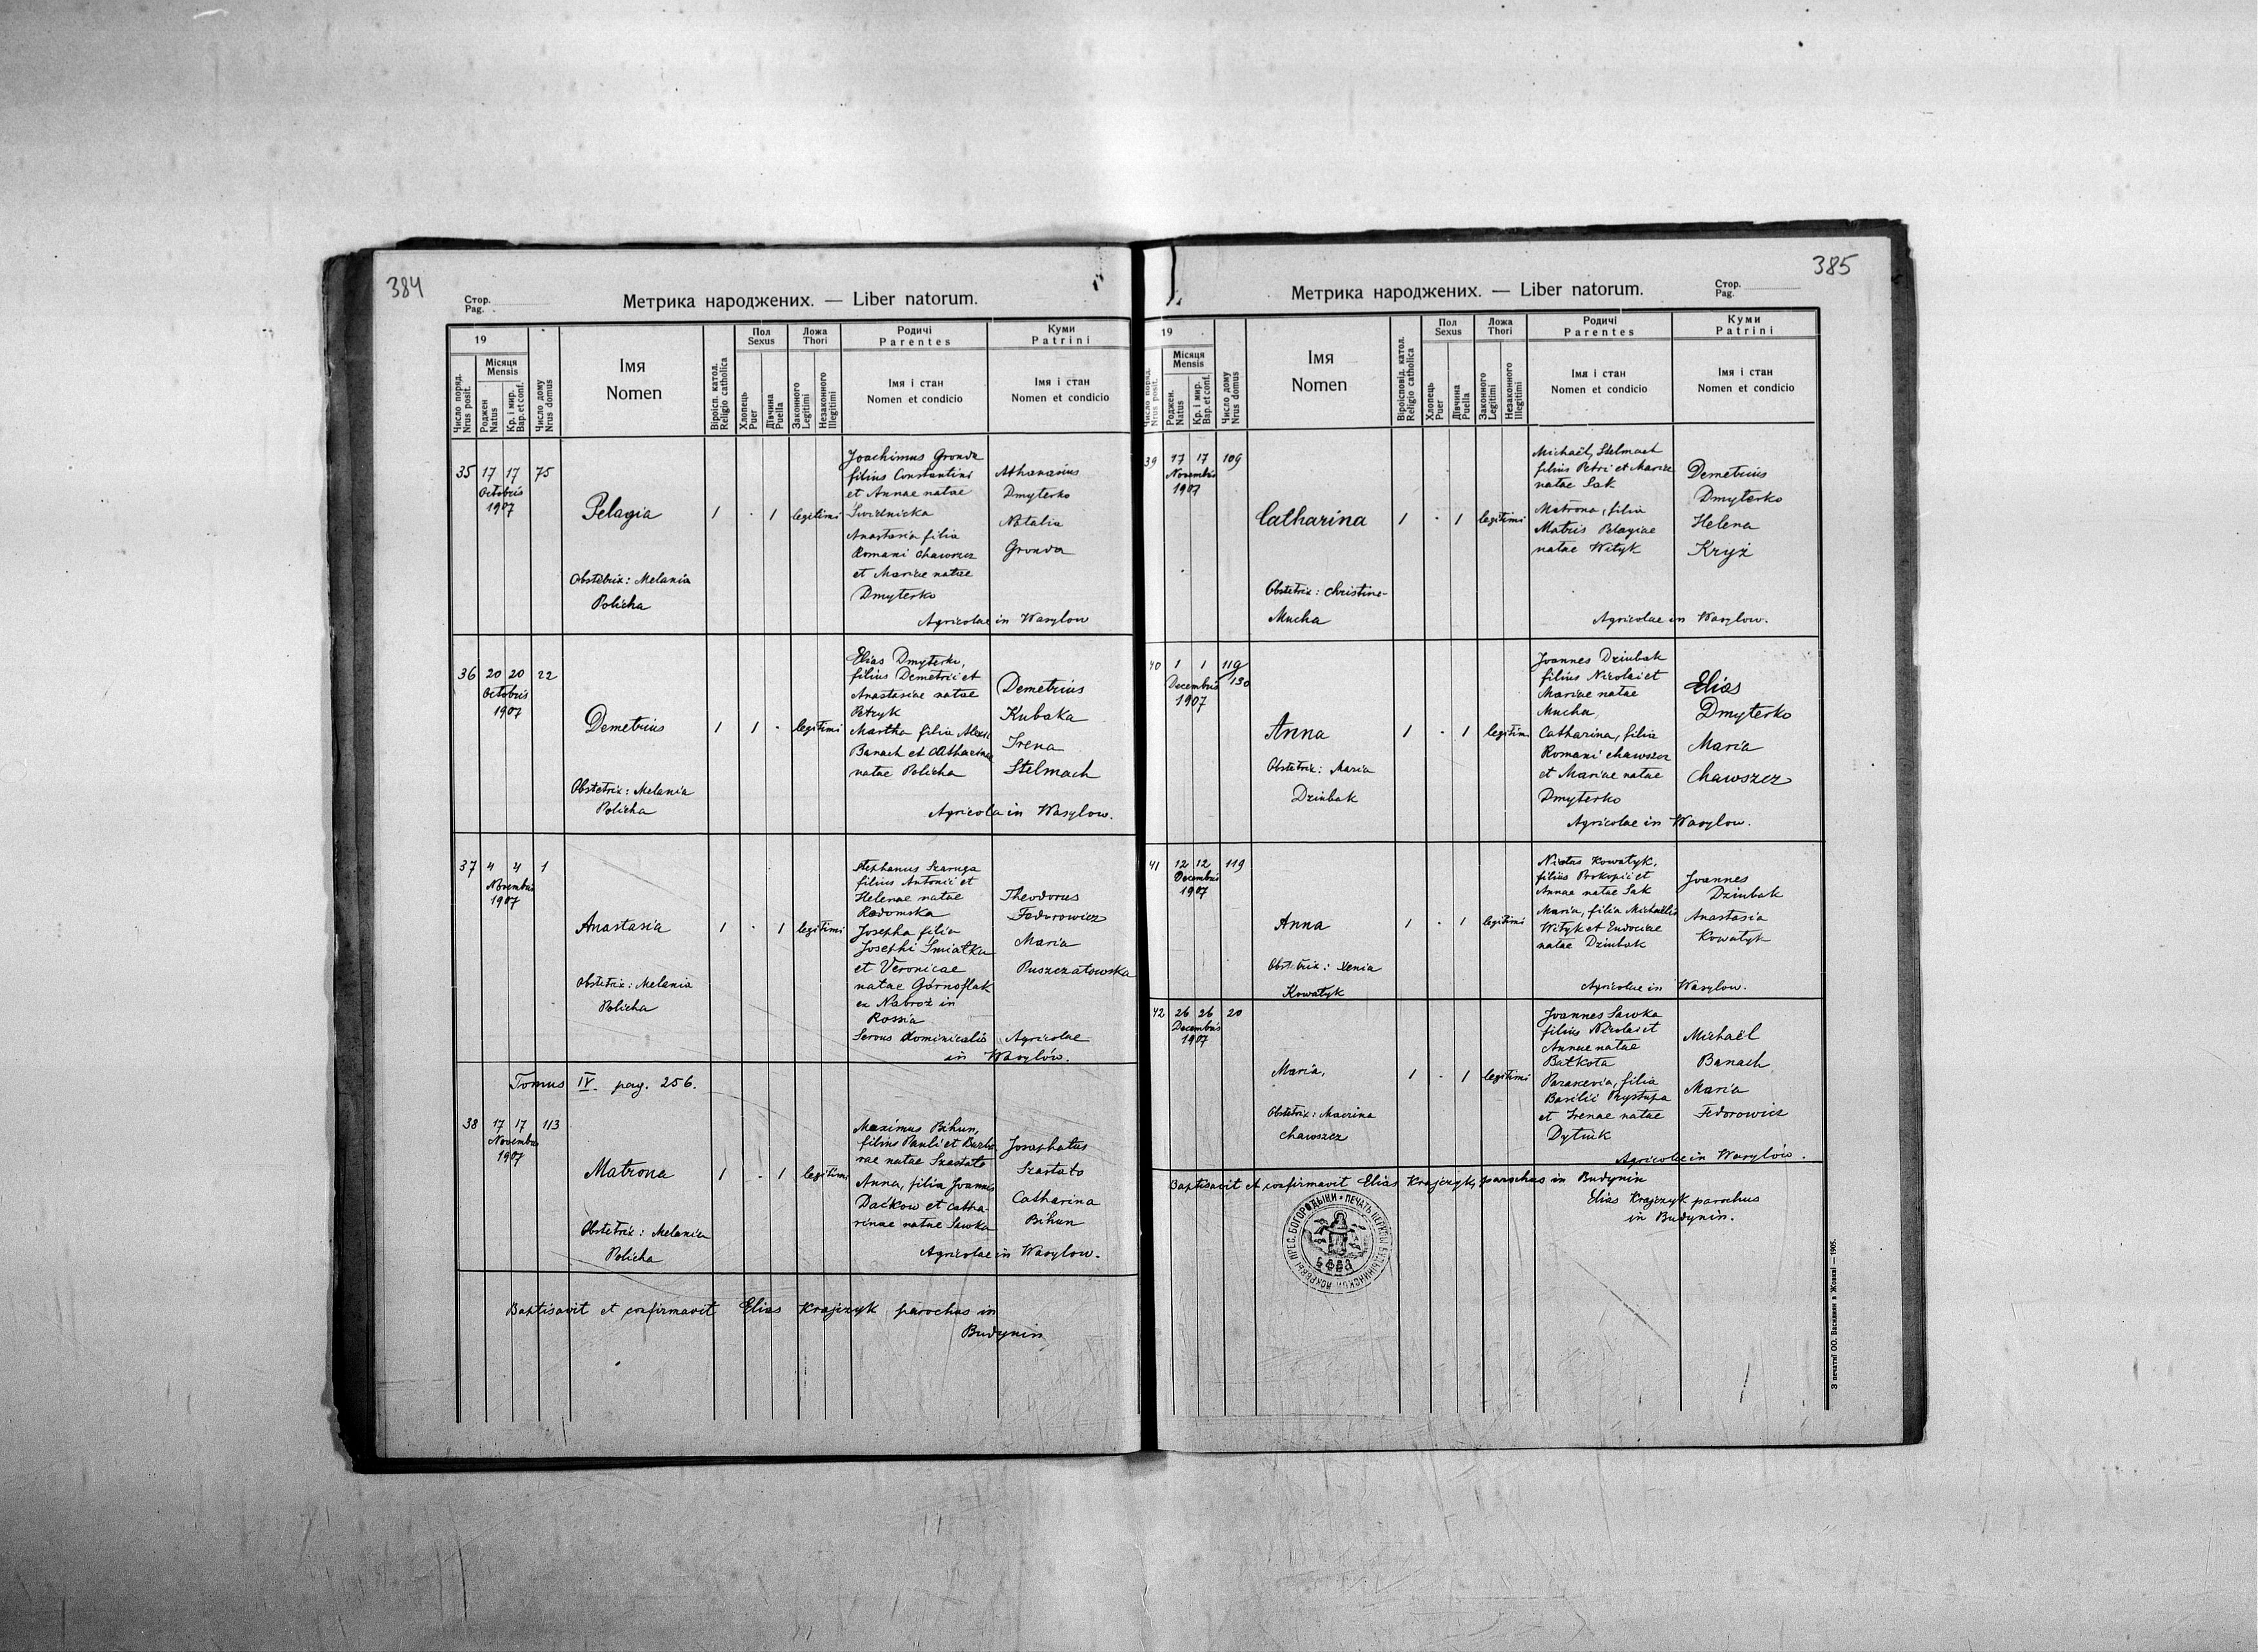 384
Стор.
Pag.
Метрика народжених. — Liber natorum.
19
Число поряд.
Nrus posit.
Місяця
Mensis
Роджен
Natus
Кр. і мир.
Bap. et conf.
Число дому
Nrus domus
Імя
Nomen
Віроісп. катол.
Religio catholica
Пол
Sexus
Хлопець
Puer
Дївчина
Puella
Ложа
Thori
Законного
Legitimi
Незаконного
Illegitimi
Родичі
Parentes
Імя і стан
Nomen et condicio
Куми
Patrini
Імя і стан
Nomen et condicio
35 17 17 75
Octobris
1907
Pelagia
1 . 1 legitimi
Obstetrix: Melania
Policha
Joachimus Gronda
filius Constantini
et Annae natae
Świdnicka
Anastasia filia
Romani Chawszcz
et Mariae natae
Dmyterko
Athanasius
Dmyterko
Natalia
Gronda
Agricolae in Wasylow
36 20 20 22
Octobris
1907
Demetrius
1 1 . legitimi
Obstetrix: Melania
Policha
Elias Dmyterko,
filius Demetrii et
Anastasiae natae
Petryk
Martha filia Alexii
Banach et Catharinae
natae Policha
Demetrius
Kubaka
Irena
Stelmach
Agricola in Wasylow.
37 4 4 1
Novembris
1907
Anastasia
1 . 1 legitimi
Obstetrix: Melania
Policha
Stephanus Szaruga
filius Antonii et
Helenae natae
Radomska
Josepha filia
Josephi Śmiałka
et Veronicae
natae Górnoflak
ex Nabroż in
Rossia
Servus dominicalis
Theodorus
Fedorowicz
Maria
Puszczałowska
Agricolae
in Wasylów.
Tomus IV. pag. 256.
38 17 17 113
Novembris
1907
Matrona
1 . 1 legitimi
Obstetrix: Melania
Policha
Maximus Bihun,
filius Pauli et Barba
rae natae Szastało
Anna, filia Joannis
Daćkow et Catha-
rinae natae Sawka
Josaphatus
Szastało
Catharina
Bihun
Agricolae in Wasylow.
Baptisavit et confirmavit Elias Krajczyk parochus in
Budynin
385
Метрика народжених. — Liber natorum.
Стор.
Pag.
19
Число поряд.
Nrus posit.
Місяця
Mensis
Роджен.
Natus
Кр. і мир.
Bap. et conf.
Число дому
Nrus domus
Імя
Nomen
Віроісповід. катол.
Religio catholica
Пол
Sexus
Хлопець
Puer
Дївчина
Puella
Ложа
Thori
Законного
Legitimi
Незаконного
Illegitimi
Родичі
Parentes
Імя і стан
Nomen et condicio
Куми
Patrini
Імя і стан
Nomen et condicio
39 17 17 109
Novembris
1907
Catharina
1 . 1 legitimi
Obstetrix: Christine
Mucha
Michaël, Stelmach
filius Petri et Mariae
natae Sak
Matrona, filia
Matris Pelagiae
natae Wityk
Demetrius
Dmyterko
Helena
Kryż
Agricolae in Wasylow.
40 1 1 119/130
Decembris
1907
Anna
1 . 1 legitimi
Obstetrix: Maria
Dziubak
Joannes Dziubak
filius Nicolai et
Mariae natae
Mucha,
Catharina, filia
Romani Chawszcz
et Mariae natae
Dmyterko
Elias
Dmyterko
Maria
Chawszcz
Agricolae in Wasylow.
41 12 12 119
Decembris
1907
Anna
1 . 1 legitimi
Obstetrix: Xenia
Kowałyk
Kowałyk,
filius Prokopii et
Annae natae Sak
Maria, filia Michaëlis
Wityk et Eudociae
natae Dziubak
Joannes
Dziubak
Anastasia
Kowałyk
Agricolae in Wasylow.
42 26 26 20
Decembris
1907
Maria,
1 . 1 legitimi
Obstetrix: Macrina
Chawszcz
Joannes Sawka
filius Nicolai et
Annae natae
Bałkota
Parascevia, filia
Basilii Prystupa
et Irenae natae
Dytiuk
Michaël
Banach
Maria
Fedorowicz
Agricolae in Wasylów.
Baptisavit et confirmavit Elias Krajczyk, parochus in Budynin
Elias Krajczyk parochus
in Budynin.
З печатнї ОО. Василиян в Жовкві — 1905.